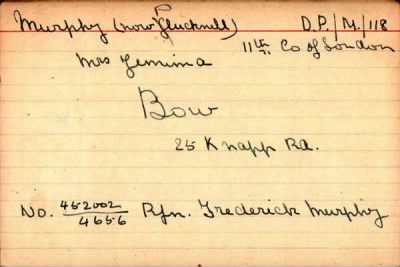 Murphy (now Flucknell) D.P./M./118
Mrs Jemima 11th Co of London
Bow
25 Knapp Rd.
No. 452002/4656 Rfn. Frederick Murphy